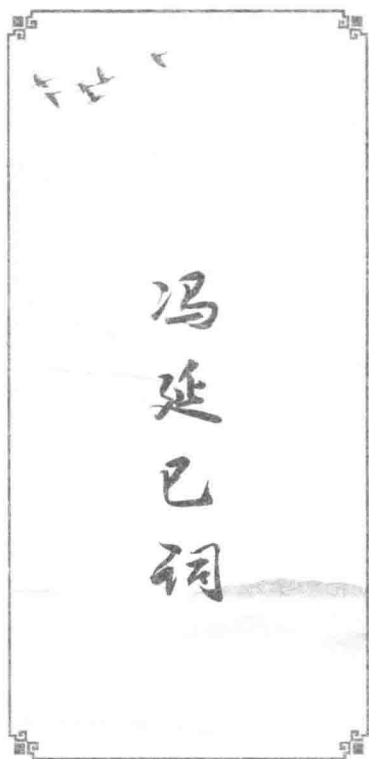 冯延巳词